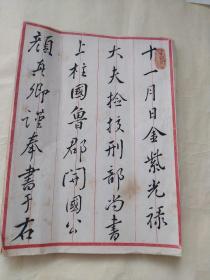 十一月日金紫光禄
大夫捡挍刑部尚書
上柱國魯郡開國公
顔真卿謹奉書于右